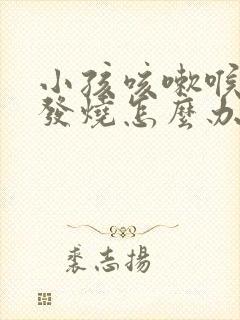 小孩咳嗽喉
發燒怎麼办
裘志揚